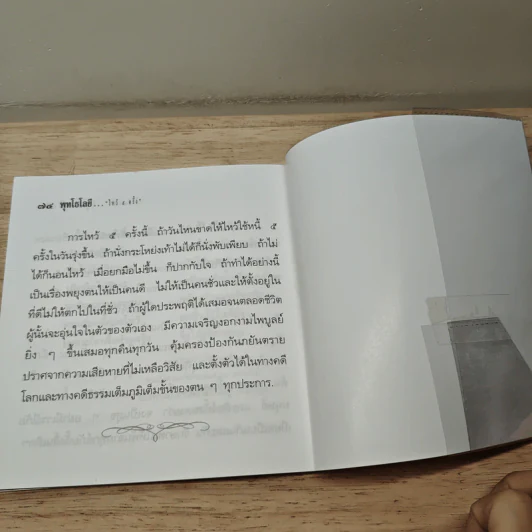 ๗๔ พุทโธโลยี... "ไหว้ ๕ ครั้ง"
การไหว้ ๕ ครั้งนี้ ถ้าวันไหนขาดให้ไหว้ใช้หนี้ ๕
ครั้งในวันรุ่งขึ้น ถ้านั่งกระโหย่งเท้าไม่ได้ก็นั่งพับเพียบ ถ้าไม่
ได้ก็นอนไหว้ เมื่อยกมือไม่ขึ้น ก็ปากกับใจ ถ้าทำได้อย่างนี้
เป็นเรื่องพยุงตนให้เป็นคนดี ไม่ให้เป็นคนชั่วและให้ตั้งอยู่ใน
ที่ดีไม่ให้ตกไปในที่ชั่ว ถ้าผู้ใดประพฤติได้เสมอจนตลอดชีวิต
ผู้นั้นจะอุ่นใจในตัวของตัวเอง มีความเจริญงอกงามไพบูลย์
ยิ่ง ๆ ขึ้นเสมอทุกคืนทุกวัน คุ้มครองป้องกันภยันตราย
ปราศจากความเสียหายที่ไม่เหลือวิสัย และตั้งตัวได้ในทางคดี
โลกและทางคดีธรรมเต็มภูมิเต็มชั้นของตน ๆ ทุกประการ.